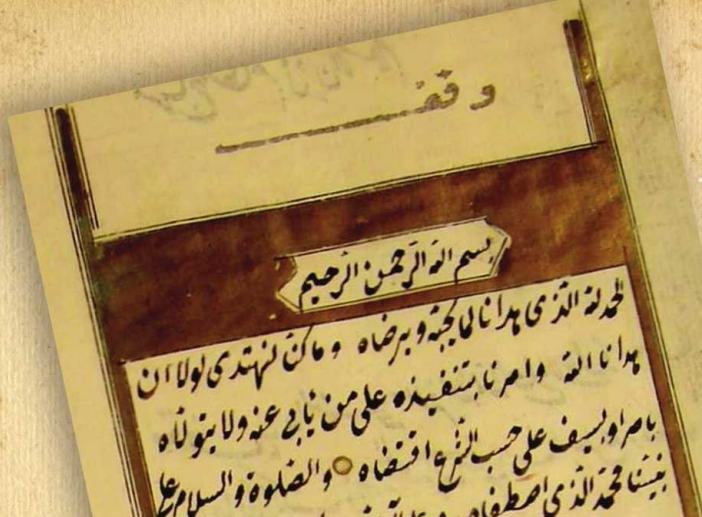 وقف
بسم الله الرحمن الرحيم
الحمد لله الذى هدانا لما يحبه ويرضاه وما كنا لنهتدى لولا ان
هدانا الله وامرنا بتنفيذه على من نابى عنه ولا يتولاه
بامر او بسيف على حسب الشرع اقتضاه والصلوة والسلام على
نبينا محمد الذى اصطفاه